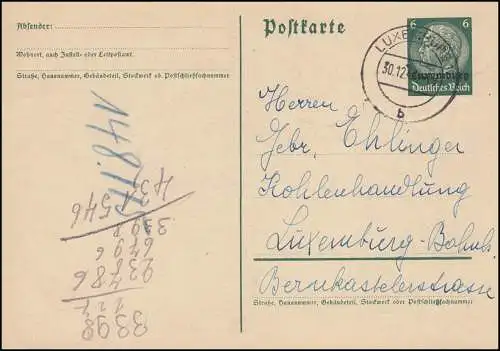 Absender:
Wohnort, auch Zustell- oder Leitpostamt
Straße, Hausnummer, Gebäudeteil, Stockwerk od. Postschließfachnummer
Postkarte
6 6
Luxemburg
Deutsches Reich
LUXEMBURG
30.12
b
Herren
Gebr. Ehlinger
Kohlenhandlung
Luxemburg-Bahnh.
Bernkastelerstrasse
Straße, Hausnummer, Gebäudeteil, Stockwerk oder Postschließfachnummer
3398
786
6496